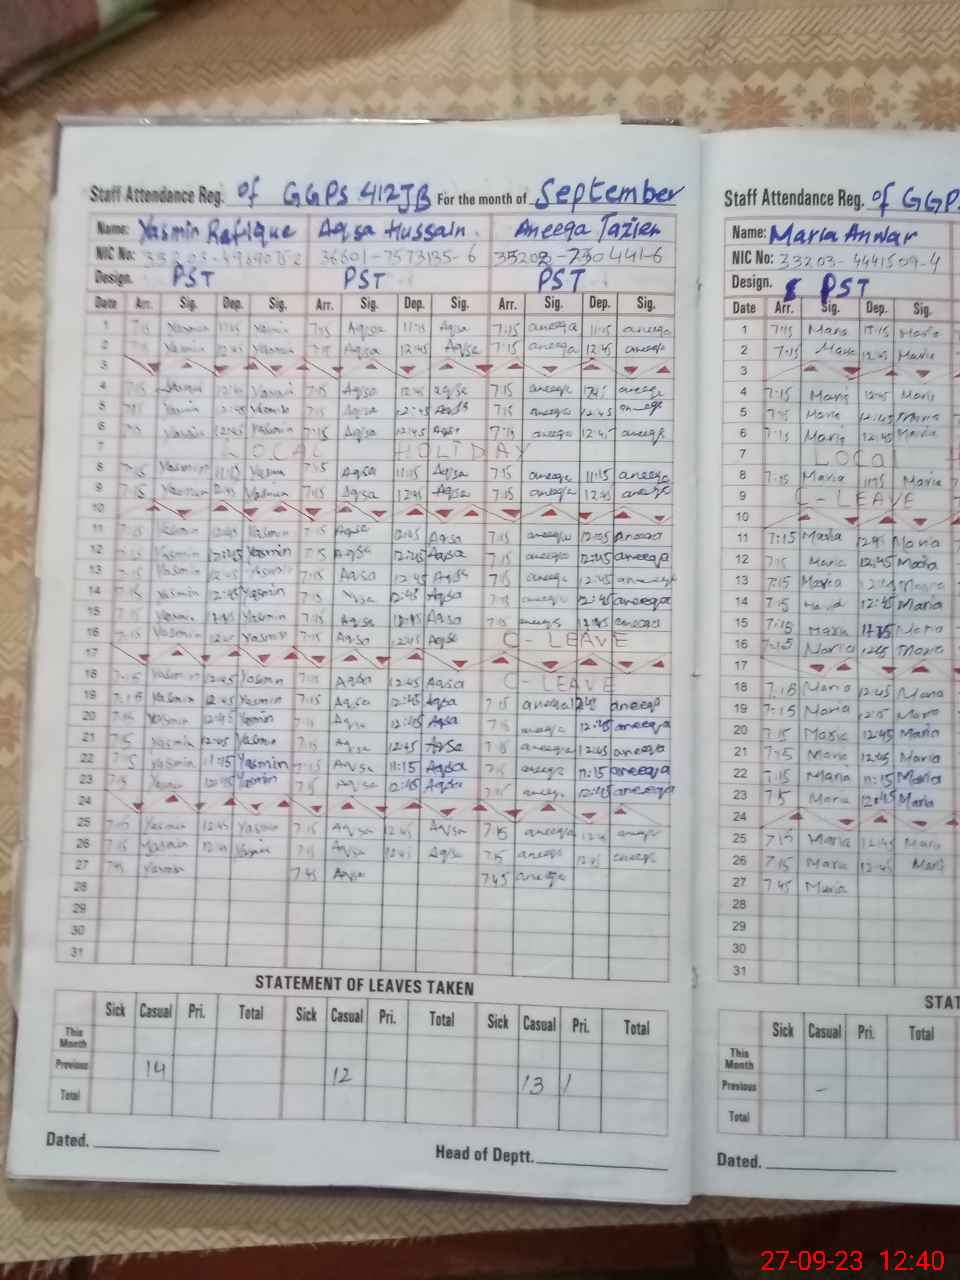 Staff Attendance Reg. of GGPS 412JB For the month of September
Name: Yasmin Rafique Aqsa Hussain. Aneeqa Tazien
NIC No: 36601-7573135-6
Design. PST PST PST
Date Arr. Sig. Dep. Sig. Arr. Sig. Dep. Sig. Arr. Sig. Dep. Sig.
1 7:15 Yasmin 11:15 Yasmin 7:15 Aqsa 11:15 Aqsa 7:15 aneeqa 11:15 aneeqa
2 7:15 Yasmin 12:45 Yasmin 7:15 Aqsa 12:45 Aqsa 7:15 aneeqa 12:45 aneeqa
3
4 7:15 Yasmin 12:45 Yasmin 7:15 Aqsa 12:45 Aqsa 7:15 aneeqa 12:45 aneeqa
5 7:15 Yasmin 12:45 Yasmin 7:15 Aqsa 12:45 Aqsa 7:15 aneeqa 12:45 aneeqa
6 Yasmin 12:45 Yasmin 7:15 Aqsa 12:45 Aqsa 7:15 aneeqa 12:45 aneeqa
7 LOCAL HOLIDAY
8 7:15 Yasmin 11:15 Yasmin 7:15 Aqsa 11:15 Aqsa 7:15 aneeqa 11:15 aneeqa
9 7:15 Yasmin 12:45 Yasmin 7:15 Aqsa 12:45 Aqsa 7:15 aneeqa 12:45 aneeqa
10
11 7:15 Yasmin 12:45 Yasmin 7:15 Aqsa 12:45 Aqsa 7:15 aneeqa 12:45 aneeqa
12 7:15 Yasmin 12:45 Yasmin 7:15 Aqsa 12:45 Aqsa 7:15 aneeqa 12:45 aneeqa
13 7:15 Yasmin 12:45 Yasmin 7:15 Aqsa 12:45 Aqsa 7:15 aneeqa 12:45 aneeqa
14 7:15 Yasmin 12:45 Yasmin 7:15 Aqsa 12:45 Aqsa 7:15 aneeqa 12:45 aneeqa
15 7:15 Yasmin 12:45 Yasmin 7:15 Aqsa 12:45 Aqsa 7:15 aneeqa 12:45 aneeqa
16 7:15 Yasmin 12:45 Yasmin 7:15 Aqsa 12:45 Aqsa C-LEAVE
17
18 7:15 Yasmin 12:45 Yasmin 7:15 Aqsa 12:45 Aqsa C-LEAVE
19 7:15 Yasmin 12:45 Yasmin 7:15 Aqsa 12:45 Aqsa 7:15 aneeqa 12:45 aneeqa
20 7:15 Yasmin 12:45 Yasmin 7:15 Aqsa 12:45 Aqsa 7:15 aneeqa 12:45 aneeqa
21 7:15 Yasmin 12:45 Yasmin 7:15 Aqsa 12:45 Aqsa 7:15 aneeqa 12:45 aneeqa
22 7:15 Yasmin 11:15 Yasmin 7:15 Aqsa 11:15 Aqsa 7:15 aneeqa 11:15 aneeqa
23 7:15 Yasmin 12:45 Yasmin 7:15 Aqsa 12:45 Aqsa 7:15 aneeqa 12:45 aneeqa
24
25 7:15 Yasmin 12:45 Yasmin 7:15 Aqsa 12:45 Aqsa 7:15 aneeqa 12:45 aneeqa
26 7:15 Yasmin 12:45 Yasmin 7:15 Aqsa 12:45 Aqsa 7:15 aneeqa 12:45 aneeqa
27 7:45 Yasmin 7:45 Aqsa 7:45 aneeqa
28
29
30
31
STATEMENT OF LEAVES TAKEN
Sick Casual Pri. Total Sick Casual Pri. Total Sick Casual Pri. Total
This Month
Previous 14 12 13 /
Total
Dated.
Head of Deptt.
Staff Attendance Reg. of GGPS
Name: Maria Anwar
NIC No: 33203-4441509-4
Design. PST
Date Arr. Sig. Dep. Sig.
1 7:15 Maria 11:15 Maria
2 7:15 Maria 12:45 Maria
3
4 7:15 Maria 12:45 Maria
5 7:15 Maria 12:45 Maria
6 7:15 Maria 12:45 Maria
7 LOCal
8 7:15 Maria 11:15 Maria
9 C-LEAVE
10
11 7:15 Maria 12:45 Maria
12 7:15 Maria 12:45 Maria
13 7:15 Maria 12:45 Maria
14 7:15 Maria 12:45 Maria
15 7:15 Maria Maria
16 7:15 Maria 12:45 Maria
17
18 7:15 Maria 12:45 Maria
19 7:15 Maria Maria
20 7:15 Maria 12:45 Maria
21 7:15 Maria 12:45 Maria
22 7:15 Maria 11:15 Maria
23 7:15 Maria 12:45 Maria
24
25 7:15 Maria 12:45 Maria
26 7:15 Maria 12:45 Maria
27 7:45 Maria
28
29
30
31
STAT
Sick Casual Pri. Total
This Month
Previous –
Total
Dated.
27-09-23 12:40